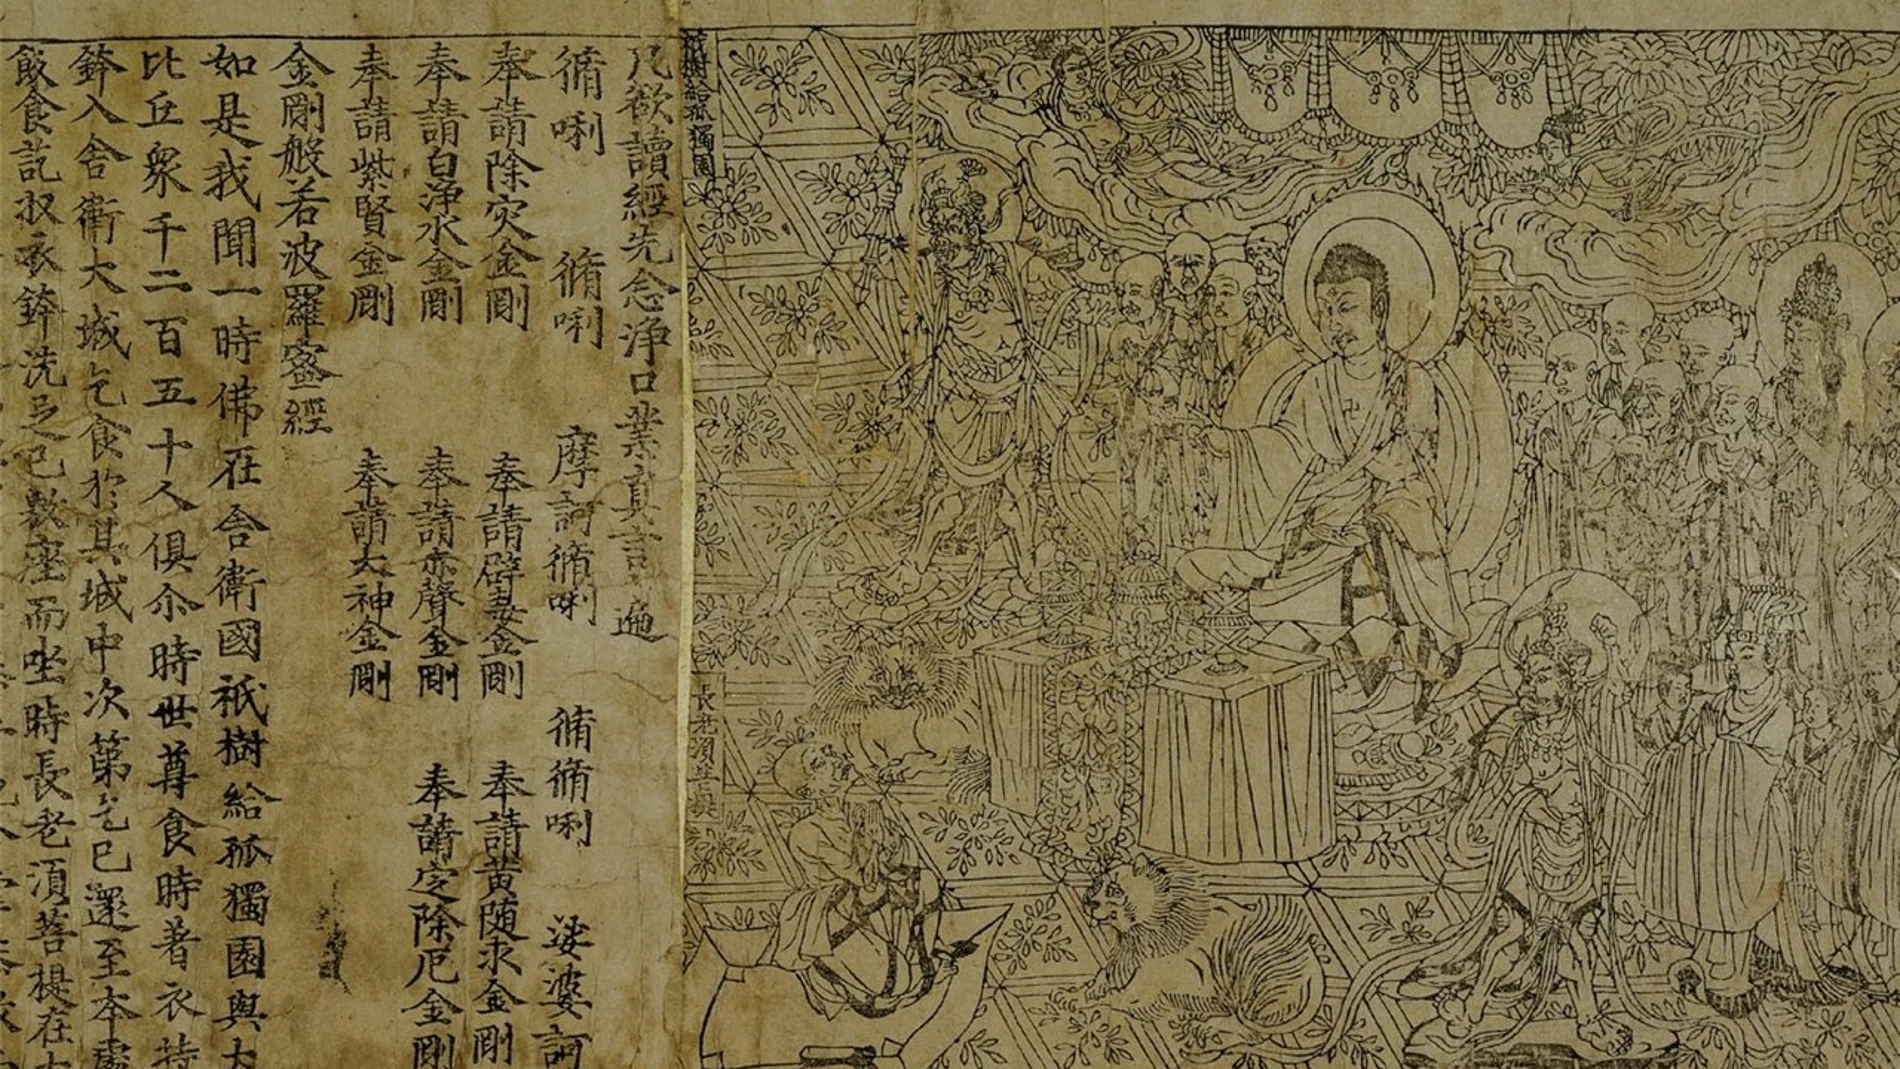 祇樹給孤獨園
長老須菩提
凡欲讀經先念淨口業真言一遍
脩唎 脩唎 摩訶脩唎 脩脩唎 娑婆訶
奉請除灾金剛 奉請辟毒金剛 奉請黃随求金剛
奉請白淨水金剛 奉請赤聲金剛 奉請定除厄金剛
奉請紫賢金剛 奉請大神金剛
金剛般若波羅蜜經
如是我聞一時佛在舍衛國祇樹給孤獨園與大
比丘衆千二百五十人俱尒時世尊食時著衣持
鉢入舍衛大城乞食於其城中次第乞已還至本處
飯食訖収衣鉢洗足已敷座而坐時長老湏菩提在大